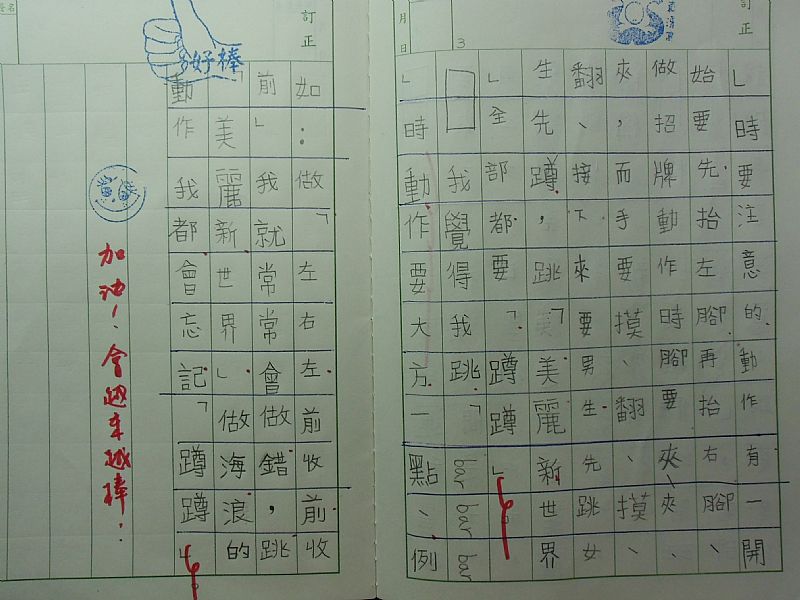 訂正
」時要注意的動作有一開
始要先抬左腳再抬右腳、
做招牌動作時腳要夾、夾、
夾,而手要摸、翻、摸、
翻、接下來要男生先跳女
生先蹲,跳「美麗新世界
」全部都要「蹲蹲」
我覺得我跳「bar bar bar
」時動作要大方一點、例
月 日
3
訂正
如:做「左右左前收前收
前」我就常常會做錯,跳
「美麗新世界」做海浪的
動作我都會忘記「蹲蹲」
好棒
加油!會越來越棒!